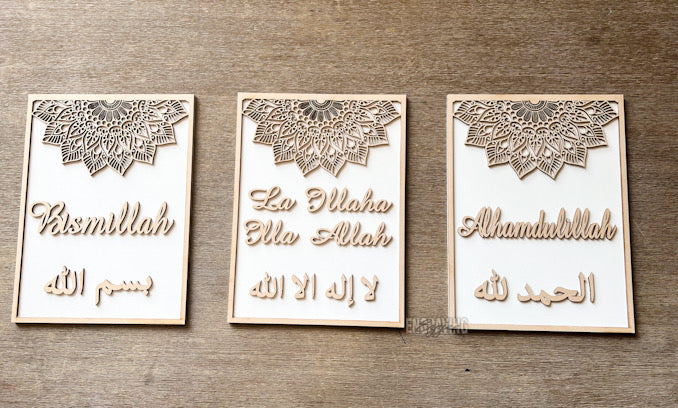 Bismillah
بسم الله
La Illaha
Illa Allah
لا إله الا الله
Alhamdulillah
الحمد لله
ENGRAVING